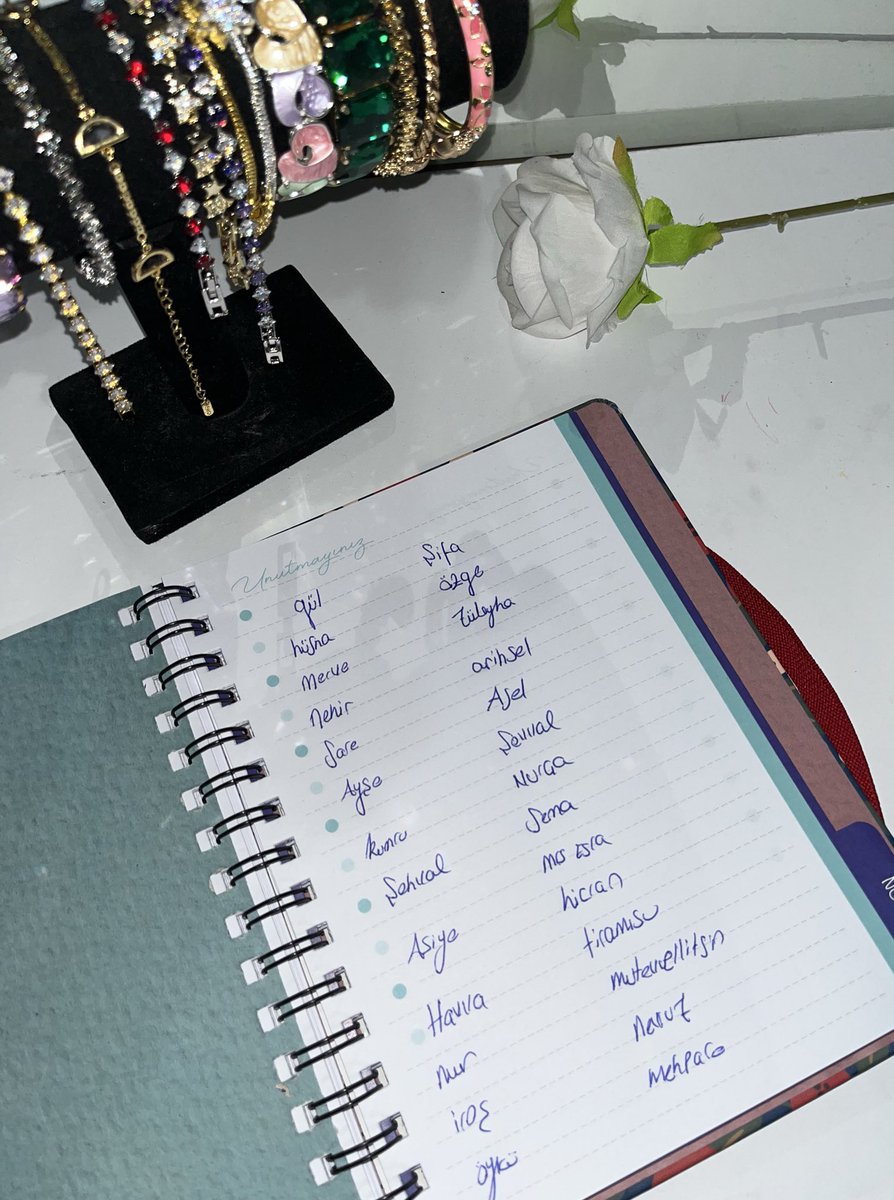 Unutmayınız
gül
hüsna
Merve
Nehir
Sare
Ayşe
kumru
Şehval
Asiye
Havva
nur
öykü
Şifa
özge
Züleyha
Asel
Şevval
Nurça
Sema
Mrs Esra
hicran
tiramisu
Nevruz
mehpare